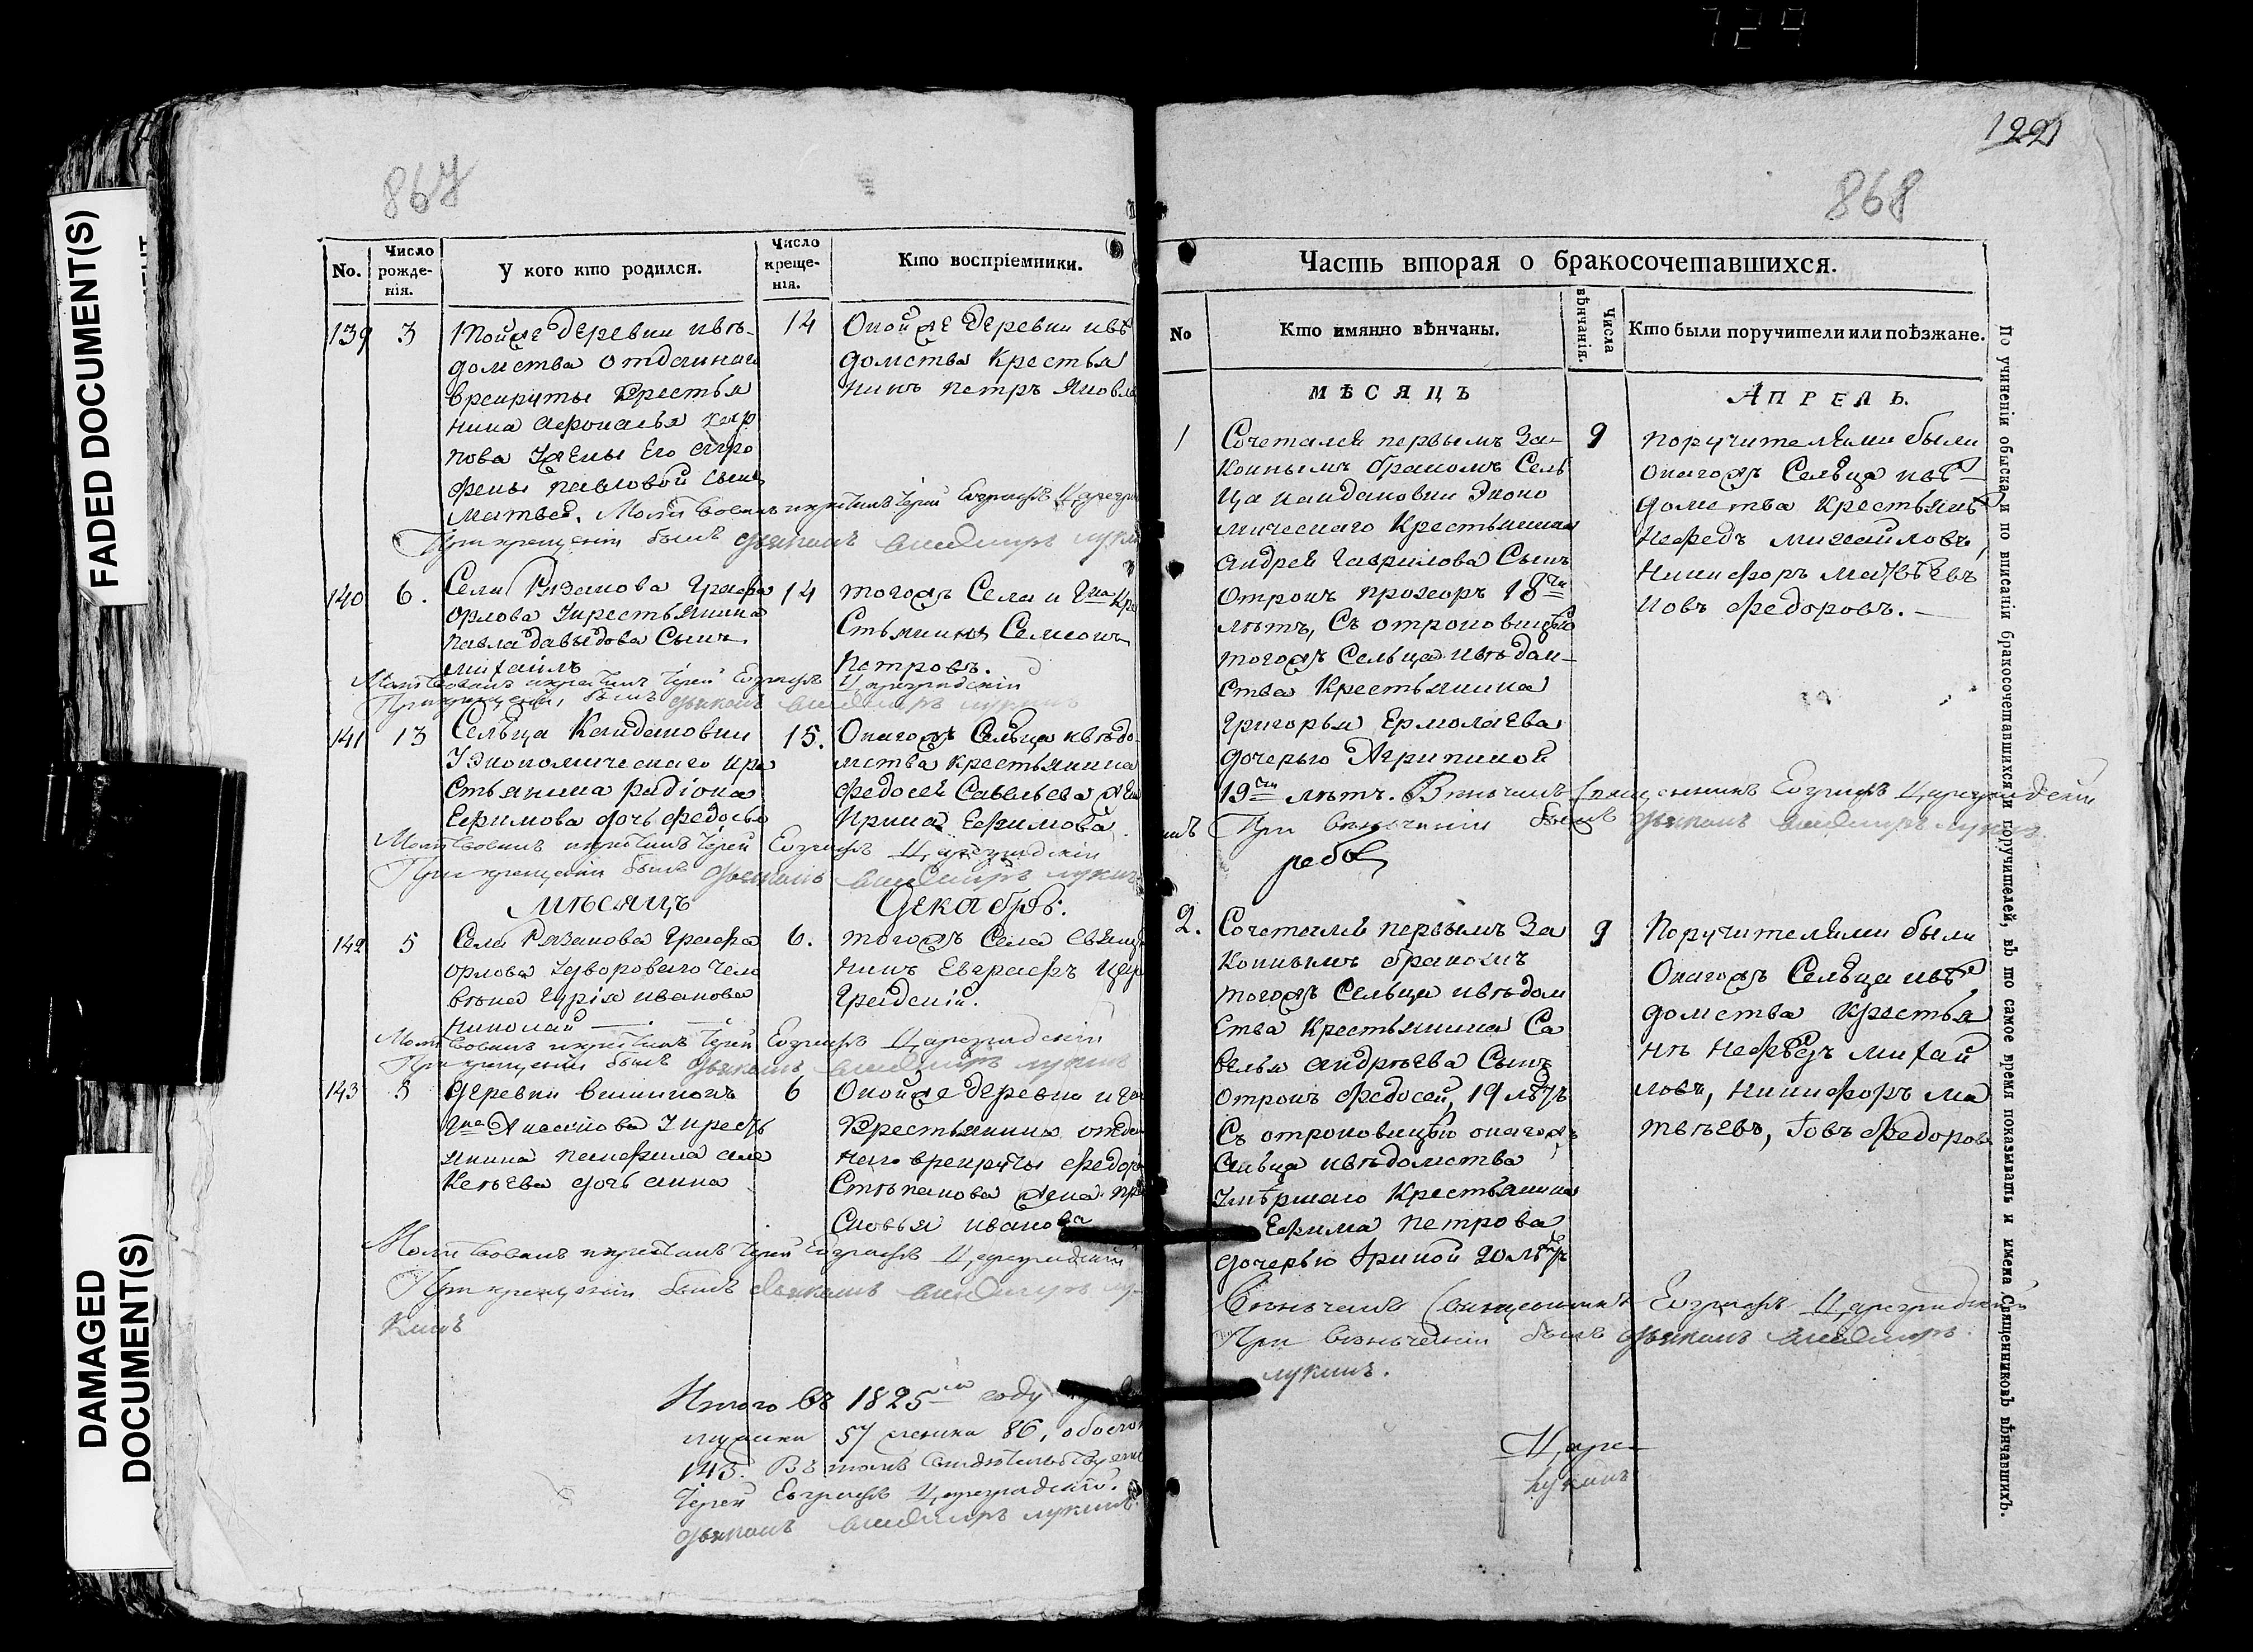 729
FADED DOCUMENT(S)
DAMAGED
DOCUMENT(S)
867
No.
Число
рожде-
нія.
У кого кто родился.
Число
креще-
нія.
Кто воспріемники.
139 3
тойже деревни ивѣ-
домства отданнаго
врекруты Крестья
нина Афонасья
пова Жены Его Агро
фены павловой Сынъ
Матвей. Молитвовалъ икрестилъ Іерей Евграфъ
При крещеніи былъ дьяконъ Владимиръ
14
Онойже деревни ивѣ
домства Крестья
нинъ петръ Яковле
140 6.
Села Рязанова Графа
Орлова Укрестьянина
Павла давыдова Сынъ
михаилъ
Молитвовалъ икрестилъ Іерей Евграфъ Цареградскій
При крещеніи былъ дьяконъ Владимиръ лукинъ
14
тогожъ Села и Гна Кре
Стьянинъ Семионъ
Петровъ.
141 13
Сельца Кандаковки
Уэкономическаго кре
Стьянина радіона
Ефимова дочь федосья
Молитвовалъ икрестилъ Іерей Евграфъ Цареградскій
При крещеніи былъ дьяконъ Владимиръ лукинъ
15.
Онагожъ Сельца ивѣдо-
мства крестьянина
федосей Савельева Жена
Ирина Ефимова
мѣсяцъ Декабрь.
142 5
Села Рязанова Графа
Орлова Удвороваго Чело
вѣка Гурія иванова
Николай
Молитвовалъ икрестилъ Іерей Евграфъ Цареградскій
При крещеніи былъ дьяконъ Владимиръ лукинъ
6.
тогожъ Села Свяще
никъ Евграфъ Цар
Градскій.
143 5
Деревни
Гна Аксакова Укресть
янина памфила Але
Ксѣева дочь анна
6
Онойже деревни и Гна
Крестьянина отда
наго врекруты федора
Стѣпанова Жена пра
Сковья иванова
Молитвовалъ икрестилъ Іерей Евграфъ Цареградскій
При крещеніи былъ дьяконъ Владимиръ лу-
кинъ
Итого въ 1825 году
мужска 57 женска 86, обоего
143. Въ томъ свидѣтельствуемъ
Іерей Евграфъ Цареградскій.
дьяконъ Владимиръ лукинъ.
868
Часть вторая о бракосочетавшихся.
No
Кто имянно вѣнчаны.
Числа
вѣнчанія.
Кто были поручители или поѣзжане.
МѢСЯЦЪ
АПРЕЛЬ.
1
Сочетался первымъ За-
Коннымъ бракомъ Сель
ца Кандаковки Эконо
мическаго Крестьянина
Андрея Гаврилова Сынъ
Отрокъ прохоръ 18ти
лѣтъ, Съ отроковицею
тогожъ Сельца ивѣдом-
Ства Крестьянина
Григорья Ермолаева
дочерью Агрипиной
19ти лѣтъ. Вѣнчалъ Священникъ Евграфъ Цареградскій
При вѣнчаніи былъ дьяконъ Владимиръ лукинъ.
9
поручителями были
онагожъ Сельца ивѣ-
домства крестьянѣ
Нефедъ михайловъ,
Никифоръ Матвѣевъ
Иовъ федоровъ.
2.
Сочетался первымъ За
Коннымъ бракомъ
тогожъ Сельца ивѣдом
Ства Крестьянина Са
велья андрѣева Сынъ
отрокъ федосей, 19 лѣтъ
Съ отроковицею онагожъ
Сельца ивѣдомства
Умѣршаго Крестьянина
Ефима петрова
дочерью Ариной 20 лѣтъ
Вѣнчалъ Священникъ Евграфъ Цареградскій
При вѣнчаніи былъ дьяконъ Владимиръ
лукинъ.
9
Поручителями были
Онагожъ Сельца ивѣ
домства Крестья
нѣ Нефедъ михай
ловъ, никифоръ ма
твѣевъ, Іовъ Федоров
Царе-
лукинъ
По учиненіи обыска и по вписаніи бракосочетавшихся и поручителей, въ то самое время показывать и имена Священниковъ вѣнчавшихъ.